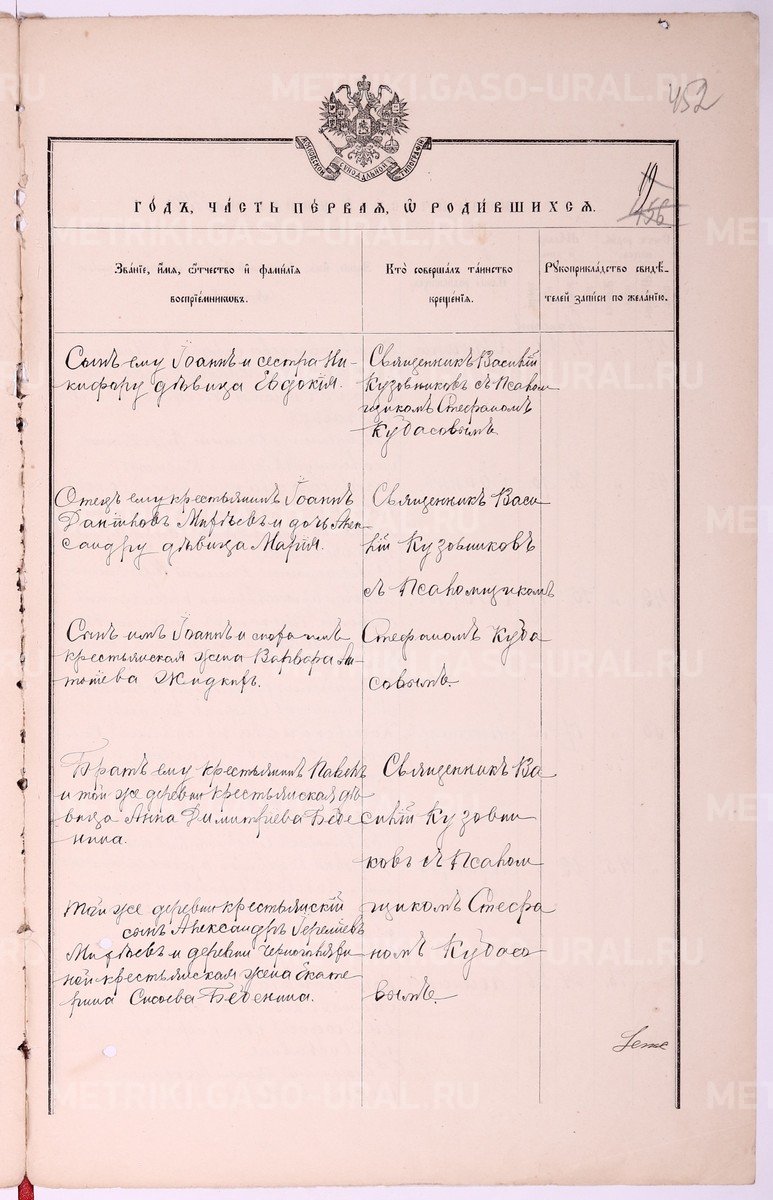 METRIKI.GASO-URAL.RU
452
МОСКОВСКОЙ СѴНОДАЛЬНОЙ ТИПОГРАФІИ
19
456
ГО́ДЪ, ЧА́СТЬ ПЕ́РВАЯ, Ѡ҆ РОДИ́ВШИХСЯ.
Зва́нїе, и҆́мя, ѻ҆́тчество и҆ фами́лїя
воспрїе́мниковъ.
Кто̀ соверша́лъ та́инство
креще́нїя.
Рꙋкоприкла́дство свидѣ́-
телей за́писи по жела́нїю.
Сынъ ему Іоаннъ и сестра Ни-
кифору дѣвица Евдокія.
Священникъ Василій
Кузовниковъ съ Псалом
щикомъ Стефаномъ
Кудасовымъ.
Отецъ ему крестьянинъ Іоаннъ
Даніиловъ и дочь Алек-
сандру дѣвица Марія.
Священникъ Васи
лій Кузовниковъ
съ Псаломщикомъ
Сынъ имъ Іоаннъ и имъ
крестьянская жена Варвара Ан
Жидкихъ.
Стефаномъ Куда
совымъ.
Братъ ему крестьянинъ Павелъ
и той же деревни крестьянская дѣ
вица Анна Димитріева Беде
нина.
Священникъ Ва
силій Кузовни
ковъ съ Псалом
щикомъ Стефа
номъ Кудасо
вымъ.
Той же деревни крестьянскій
сынъ Александръ
и деревни
ной крестьянская жена Екате
рина Сысоева Беденина.